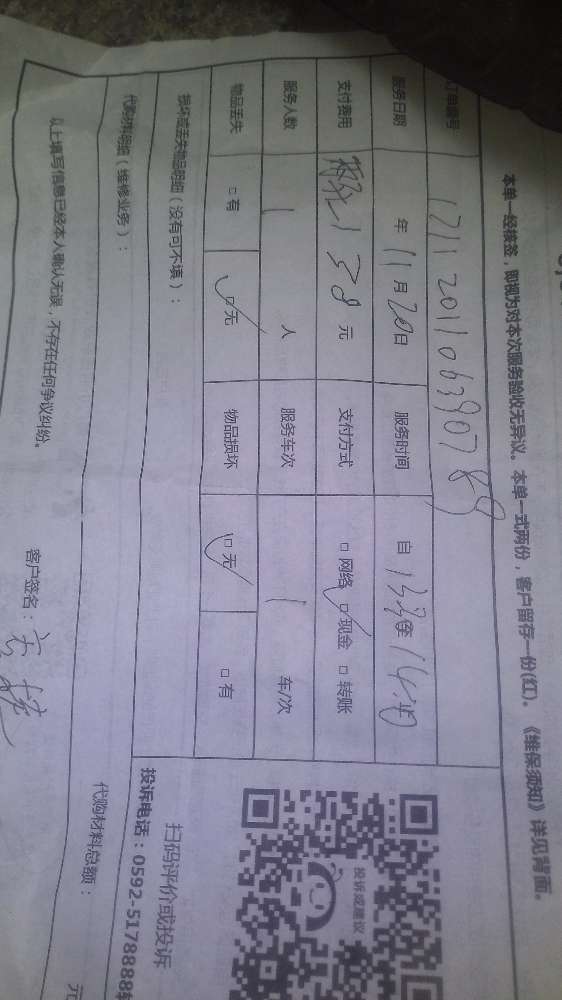 本单一经核签，即视为对本次服务验收无异议。本单一式两份，客户留存一份(红)。《维保须知》详见背面。
订单编号
服务日期 年 11月20日 服务时间 自 至
支付费用 138 元 支付方式 □ 网络 ☑ 现金 □ 转账
服务人数 1 人 服务车次 1 车/次
物品丢失 □ 有 ☑ 无 物品损坏 ☑ 无 □ 有
损坏或丢失物品明细（没有可不填）：
代购材料明细（维修业务）：
代购材料总额： 元
以上填写信息已经本人确认无误，不存在任何争议纠纷。
客户签名：
投诉或建议
扫码评价或投诉
投诉电话：0592-5178888转